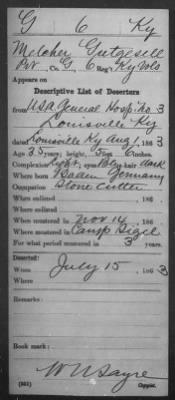 G 6 Ky
Melcher Gutgesell
Pvt, Co. G, 6 Reg't Ky Vols
Appears on
Descriptive List of Deserters
from U S A General Hosp'l No. 3
Louisville Ky
dated Louisville Ky Aug 1, 1863
Age 35 years; height, 5 feet 6 inches.
Complexion light; eyes ; hair dark
Where born Baden Germany
Occupation Stone Cutter
When enlisted , 186 .
Where enlisted
When mustered in Nov 14, 186 .
Where mustered in Camp Sigel
For what period mustered in 3 years.
Deserted:
When July 15, 1863
Where
Remarks:
Book mark:
W N Sayre
(361) Copyist.